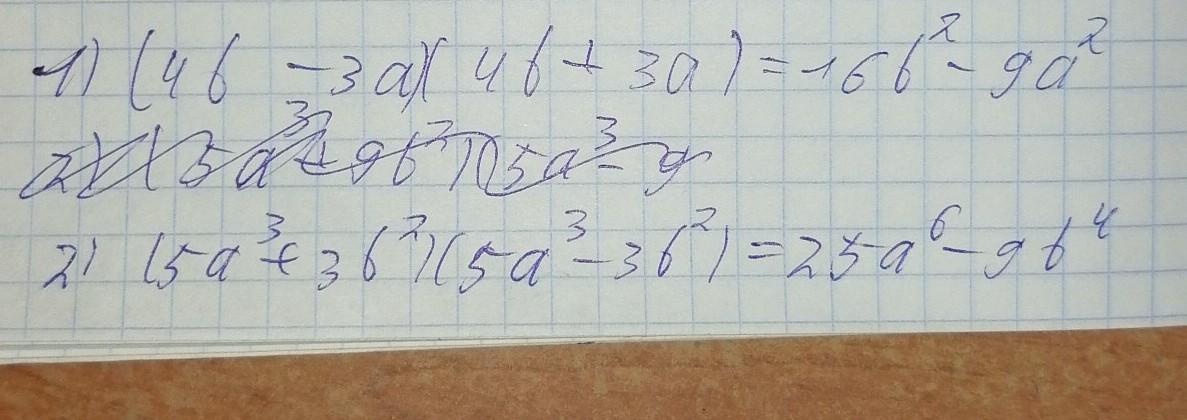 1) (4b - 3a)(4b + 3a) = 16b² - 9a²
2) (5a³ + 9b²)(5a³ - 9
2) (5a³ + 3b²)(5a³ - 3b²) = 25a⁶ - 9b⁴